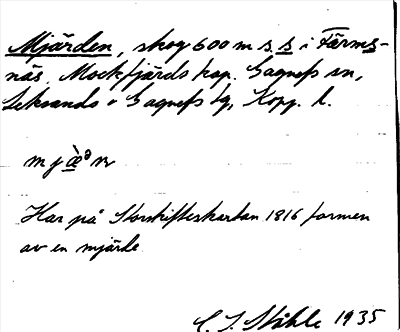 Mjärden, skog 600 m s. s i Färms-
näs, Mockfjärds kap. Gagnefs sn,
Leksands o Gagnefs tg, Kopp. l.
mjæ̀ᵊn
Har på Storskifteskartan 1816 formen
av en mjärde.
C. J. Ståhle 1935